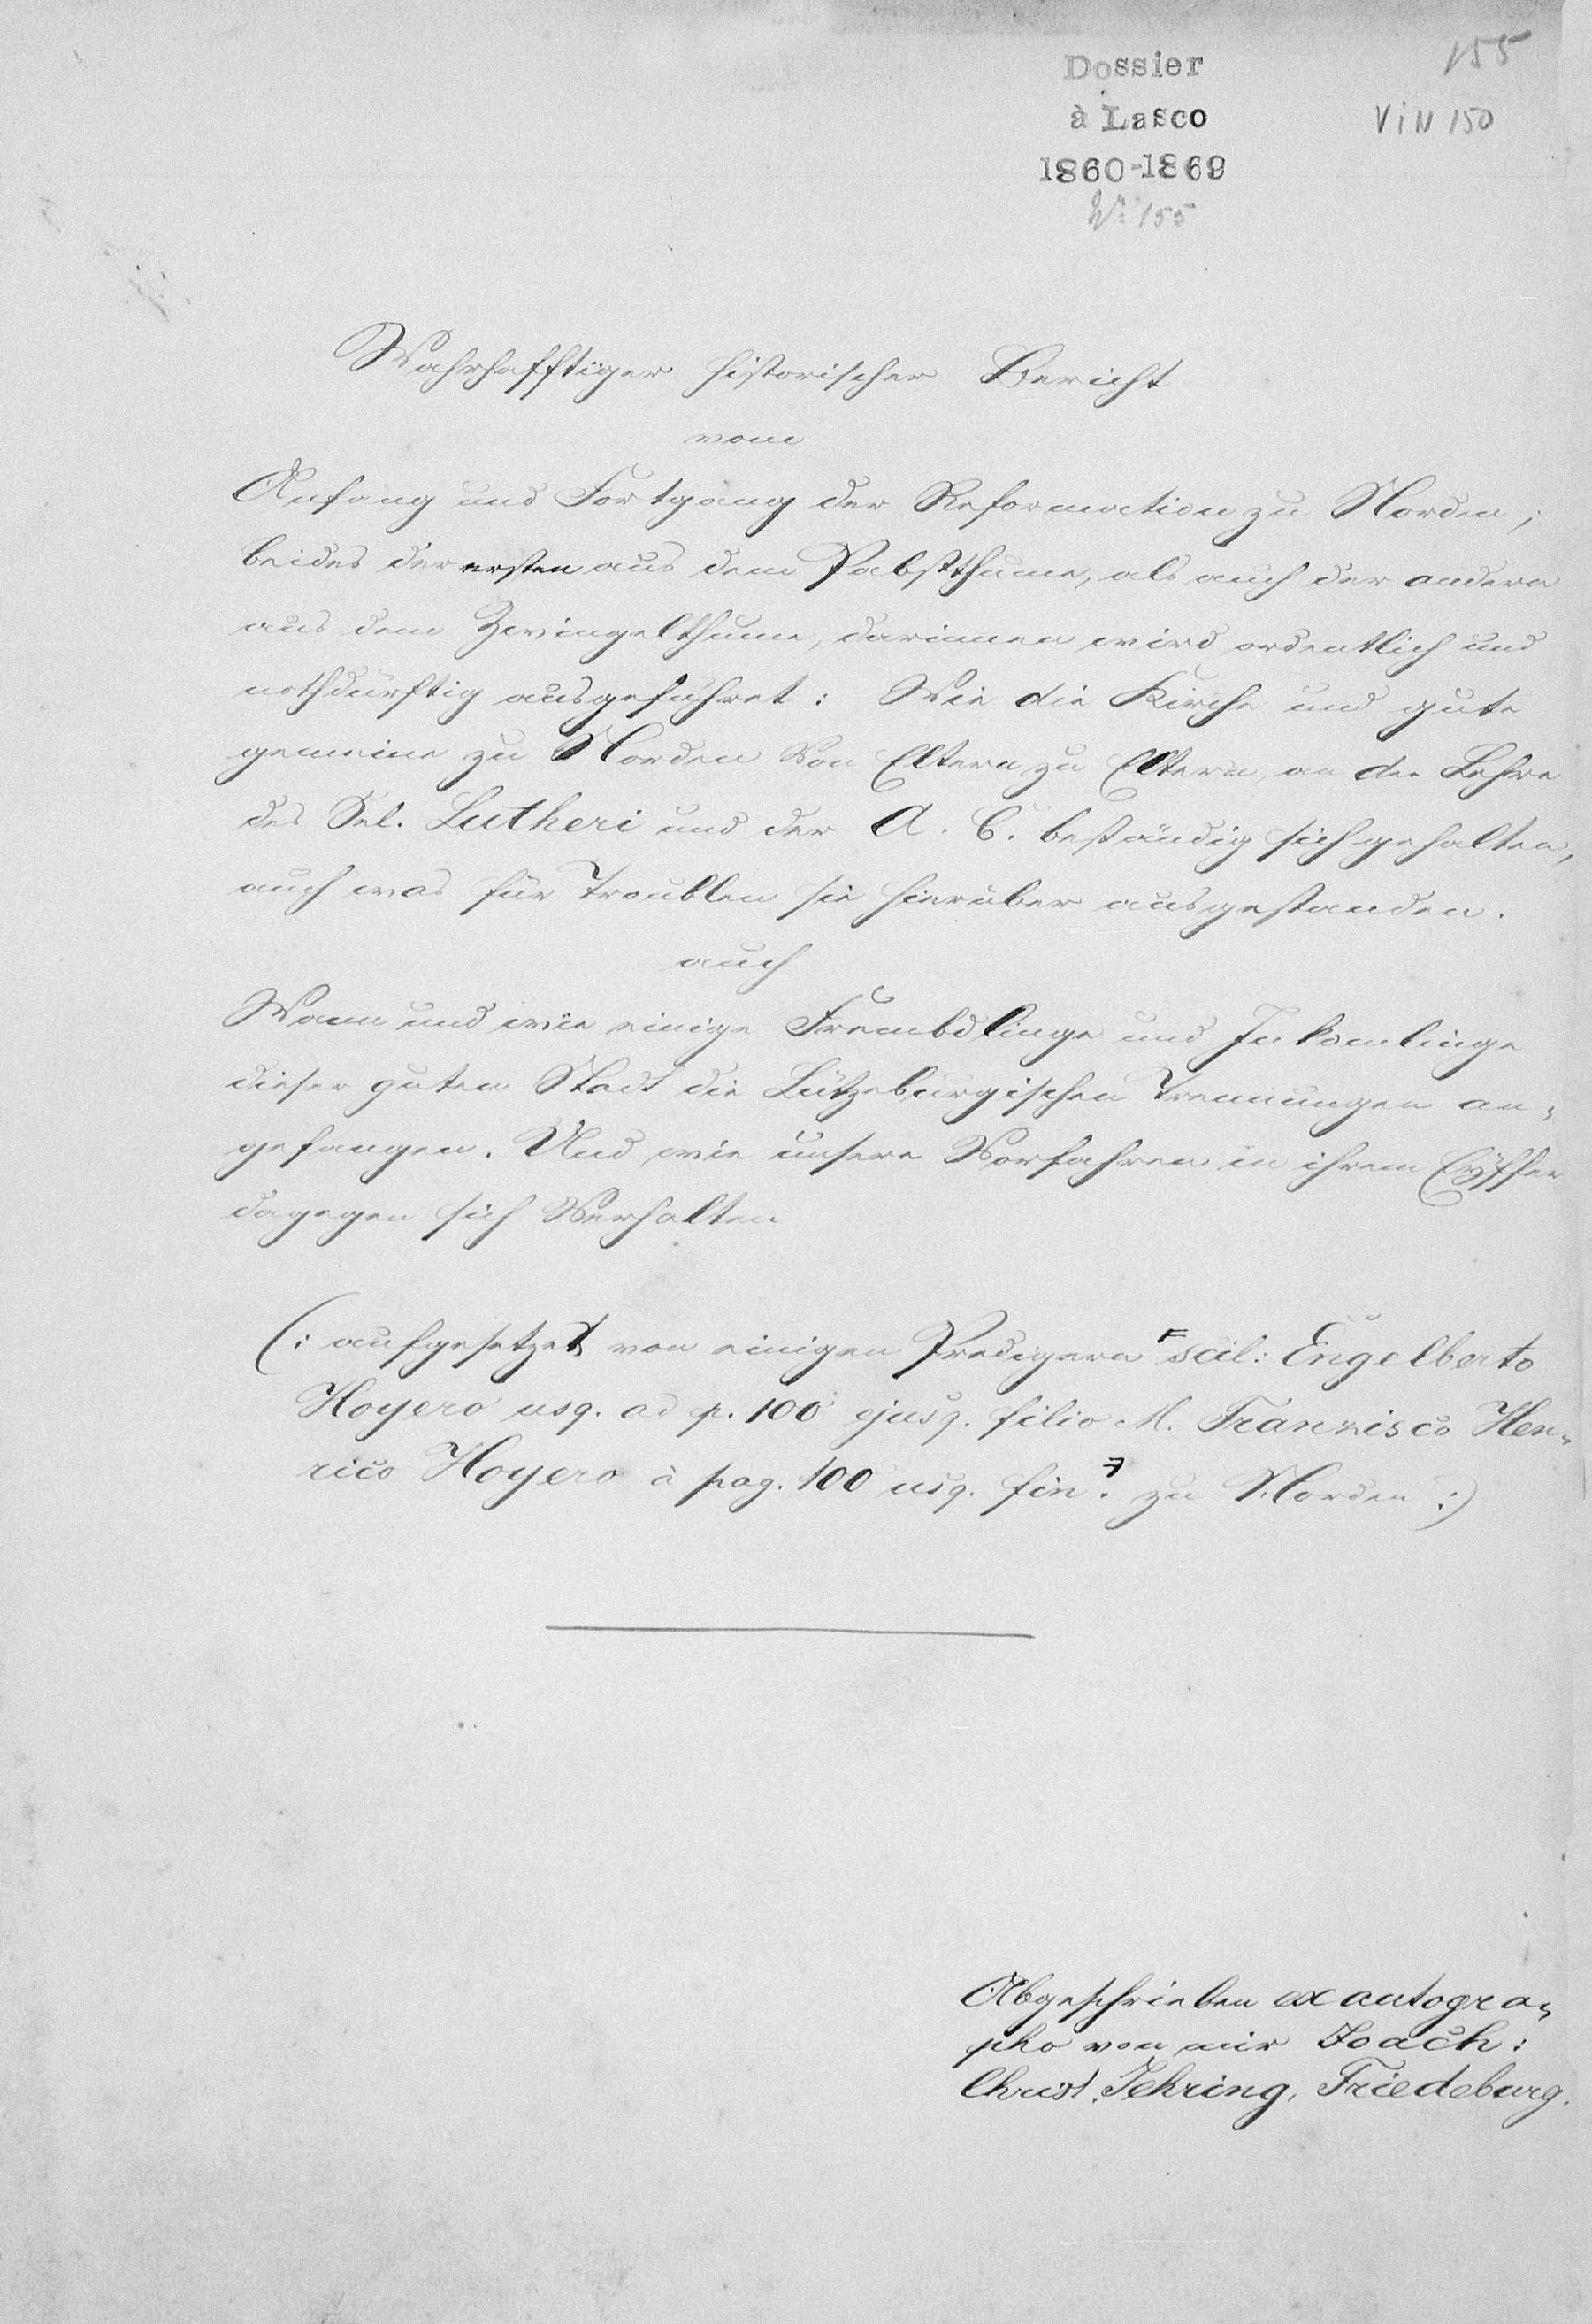 155
Dossier
à Lasco
ViN 150
1860-1869
Nº 155
Wahrhafftiger historischer Bericht
vom
Anfang und Fortgang der Reformation zu Norden;
beides der ersten aus dem Pabstthume, als auch der andern
aus dem Zwingelthume, darinnen wird ordentlich und
nothdürftig ausgeführet: Wie die Kirche und gute
gemeine zu Norden Von Eltern zu Eltern, an der Lehre
des Sel. Lutheri und der A. C. beständig sich gehalten,
auch was für Troublen sie hierüber ausgestanden.
auch
Wann und wie einige Frembdlinge und Inkomlinge
dieser guten Stadt die Lützeburgischen Trennungen an-
gefangen. Und wie unsere Vorfahren in ihrem Eyffer
dagegen sich Verhalten
(: aufgesetzet von einigen Predigern scil: Engelberto
Hoyero usq. ad p. 100 ejusq. filio M. Franzisco Hen-
rico Hoyero à pag. 100 usq. fin. zu Norden :)
Abgeschrieben ex autogra-
pho von mir Joach:
Christ. Jehring, Friedeburg.